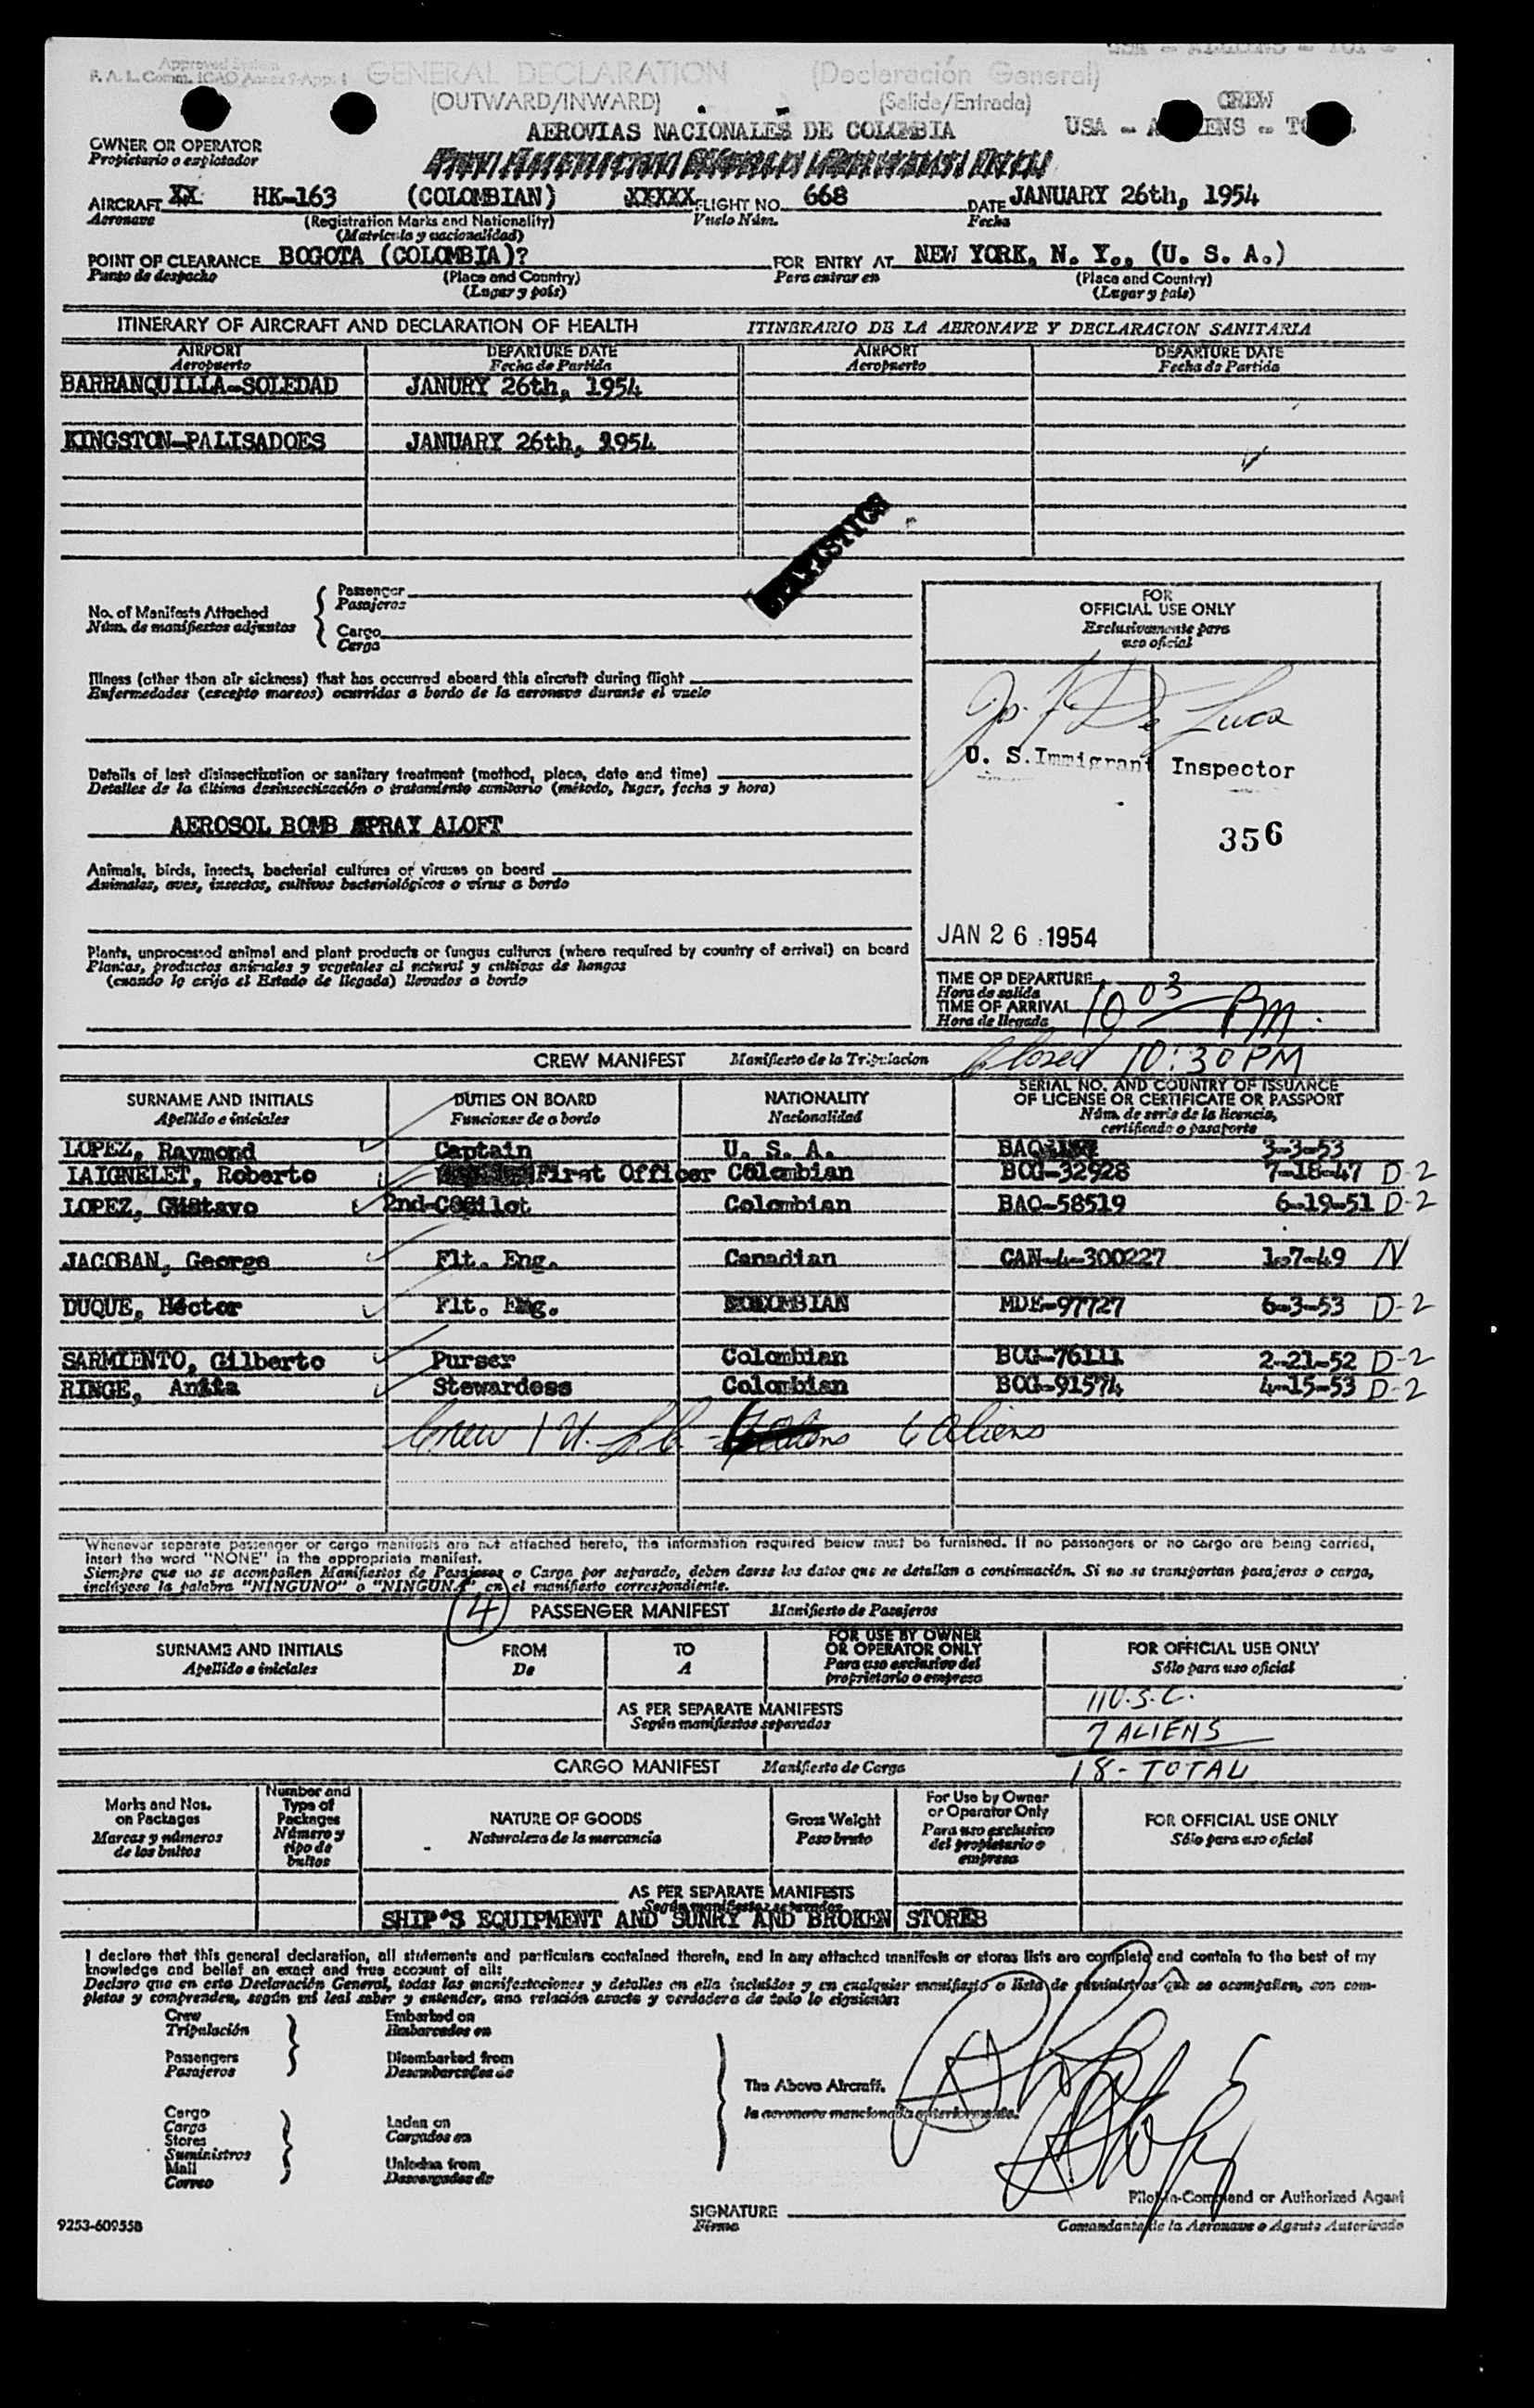 Approved System
F. A. L. Comm. ICAO Annex 9-App. 1
GENERAL DECLARATION (Declaración General)
(OUTWARD/INWARD) (Salida/Entrada)
CREW
AEROVIAS NACIONALES DE COLOMBIA
USA - ALIENS -
OWNER OR OPERATOR
Propietario o explotador
AIRCRAFT XX HK-163 (COLOMBIAN) XXXXX FLIGHT NO. 668 DATE JANUARY 26th, 1954
Aeronave (Registration Marks and Nationality) Vuelo Núm. Fecha
(Matrícula y nacionalidad)
POINT OF CLEARANCE BOGOTA (COLOMBIA)? FOR ENTRY AT NEW YORK, N. Y., (U. S. A.)
Punto de despacho (Place and Country) Para entrar en (Place and Country)
(Lugar y país) (Lugar y país)
ITINERARY OF AIRCRAFT AND DECLARATION OF HEALTH ITINERARIO DE LA AERONAVE Y DECLARACION SANITARIA
AIRPORT DEPARTURE DATE AIRPORT DEPARTURE DATE
Aeropuerto Fecha de Partida Aeropuerto Fecha de Partida
BARRANQUILLA-SOLEDAD JANURY 26th, 1954
KINGSTON-PALISADOES JANUARY 26th, 1954
STATISTICS
No. of Manifests Attached
Núm. de manifiestos adjuntos
Passenger
Pasajeros
Cargo
Carga
FOR
OFFICIAL USE ONLY
Exclusivamente para
uso oficial
Illness (other than air sickness) that has occurred aboard this aircraft during flight
Enfermedades (excepto mareos) ocurridas a bordo de la aeronave durante el vuelo
De Luca
U. S. Immigrant Inspector
356
Details of last disinsectization or sanitary treatment (method, place, date and time)
Detalles de la última desinsectización o tratamiento sanitario (método, lugar, fecha y hora)
AEROSOL BOMB SPRAY ALOFT
Animals, birds, insects, bacterial cultures or viruses on board
Animales, aves, insectos, cultivos bacteriológicos o virus a bordo
JAN 26 1954
Plants, unprocessed animal and plant products or fungus cultures (where required by country of arrival) on board
Plantas, productos animales y vegetales al natural y cultivos de hongos
(cuando lo exija el Estado de llegada) llevados a bordo
TIME OF DEPARTURE
Hora de salida
TIME OF ARRIVAL 10 03 PM.
Hora de llegada
CREW MANIFEST Manifiesto de la Tripulacion Closed 10:30 PM
SURNAME AND INITIALS DUTIES ON BOARD NATIONALITY SERIAL NO. AND COUNTRY OF ISSUANCE
OF LICENSE OR CERTIFICATE OR PASSPORT
Apellido e iniciales Funciones de a bordo Nacionalidad Núm. de serie de la licencia,
certificado o pasaporte
LOPEZ, Raymond Captain U. S. A. 3-3-53
LAIGNELET, Roberto First Officer Colombian BOG-32928 7-18-47 D-2
LOPEZ, Gustavo 2nd-Copilot Colombian BAQ-58519 6-19-51 D-2
JACOBAN, George Flt. Eng. Canadian CAN-4-300227 1-7-49 N
DUQUE, Héctor Flt. Eng. COLOMBIAN MDE-97727 6-3-53 D-2
SARMIENTO, Gilberto Purser Colombian BOG-76111 2-21-52 D-2
RINGE, Anita Stewardess Colombian BOG-91574 4-15-53 D-2
Crew 1 U.S.C. - 6 Aliens
Whenever separate passenger or cargo manifests are not attached hereto, the information required below must be furnished. If no passengers or no cargo are being carried,
insert the word "NONE" in the appropriate manifest.
Siempre que no se acompañen Manifiestos de Pasajeros o Carga por separado, deben darse los datos que se detallan a continuación. Si no se transportan pasajeros o carga,
inclúyese la palabra "NINGUNO" o "NINGUNA" en el manifiesto correspondiente.
4 PASSENGER MANIFEST Manifiesto de Pasajeros
SURNAME AND INITIALS FROM TO FOR USE BY OWNER
OR OPERATOR ONLY FOR OFFICIAL USE ONLY
Apellido e iniciales De A Para uso exclusivo del
propietario o empresa Sólo para uso oficial
11 U.S.C.
AS PER SEPARATE MANIFESTS
Según manifiestos separados
7 ALIENS
CARGO MANIFEST Manifiesto de Carga 18-TOTAL
Marks and Nos.
on Packages
Marcas y números
de los bultos
Number and
Type of
Packages
Número y
tipo de
bultos
NATURE OF GOODS
Naturaleza de la mercancía
Gross Weight
Peso bruto
For Use by Owner
or Operator Only
Para uso exclusivo
del propietario o
empresa
FOR OFFICIAL USE ONLY
Sólo para uso oficial
AS PER SEPARATE MANIFESTS
Según manifiestos separados
SHIP'S EQUIPMENT AND SUNRY AND BROKEN STORES
I declare that this general declaration, all statements and particulars contained therein, and in any attached manifests or stores lists are complete and contain to the best of my
knowledge and belief an exact and true account of all:
Declaro que en esta Declaración General, todas las manifestaciones y detalles en ella incluidos y en cualquier manifiesto o lista de suministros que se acompañen, son com-
pletos y comprenden, según mi leal saber y entender, una relación exacta y verdadera de todo lo siguiente:
Crew
Tripulación
Passengers
Pasajeros
Embarked on
Embarcados en
Disembarked from
Desembarcados de
The Above Aircraft.
la aeronave mencionada anteriormente.
Cargo
Carga
Stores
Suministros
Mail
Correo
Laden on
Cargados en
Unladen from
Descargados de
Pilot-in-Command or Authorized Agent
SIGNATURE
Firma
Comandante de la Aeronave o Agente Autorizado
9253-60955B